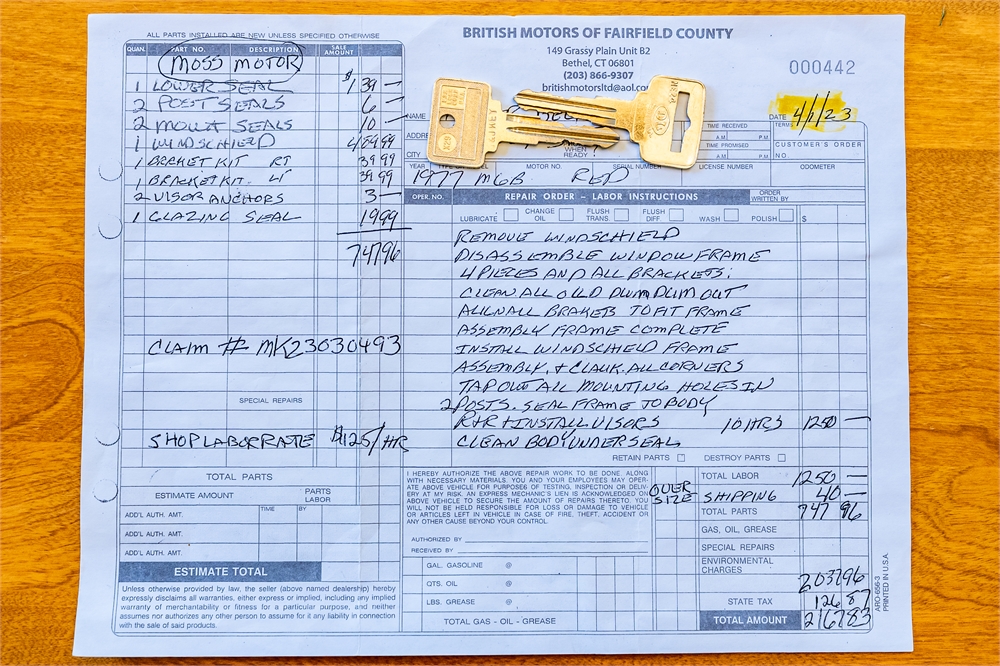 ALL PARTS INSTALLED ARE NEW UNLESS SPECIFIED OTHERWISE
BRITISH MOTORS OF FAIRFIELD COUNTY
149 Grassy Plain Unit B2
Bethel, CT 06801
(203) 866-9307
britishmotorsltd@aol.co
000442
QUAN. PART NO. DESCRIPTION SALE AMOUNT
MOSS MOTOR
1 LOWER SEAL $139 —
2 POST SEALS 6 —
2 MOUNT SEALS 10 —
1 WINDSCHIELD 48999
1 BRACKET KIT RT 3999
1 BRACKET KIT. LT 3999
2 VISOR ANCHORS 3 —
1 GLAZING SEAL 1999
74796
CLAIM # MK23030493
SPECIAL REPAIRS
SHOP LABOR RATE $125/HR
NAME
ADDRE
CITY
DATE 4/1/23
TIME RECEIVED A.M. P.M.
TIME PROMISED A.M. P.M.
CUSTOMER'S ORDER NO.
WHEN READY
YEAR MOTOR NO. SERIAL NUMBER LICENSE NUMBER ODOMETER
1977 MGB RED
OPER. NO. REPAIR ORDER – LABOR INSTRUCTIONS ORDER WRITTEN BY
LUBRICATE CHANGE OIL FLUSH TRANS. FLUSH DIFF. WASH POLISH $
REMOVE WINDSCHIELD
DISASSEMBLE WINDOW FRAME
4 PIECES AND ALL BRACKETS.
CLEAN ALL OULD DUM DUM OUT
ALIGN ALL BRAKETS TO FIT FRAME
ASSEMBLY FRAME COMPLETE
INSTALL WINDSCHIELD FRAME
ASSEMBLY. & CLAUK. ALL CORNERS
TAP OUT ALL MOUNTING HOLES IN
2 POSTS. SEAL FRAME TO BODY
R+R + INSTALL VISORS 10 HRS 1250 —
CLEAN BODY UNDER SEAL
RETAIN PARTS DESTROY PARTS
TOTAL PARTS
ESTIMATE AMOUNT PARTS LABOR
ADD'L AUTH. AMT. TIME BY
ADD'L AUTH. AMT.
ADD'L AUTH. AMT.
ESTIMATE TOTAL
Unless otherwise provided by law, the seller (above named dealership) hereby
expressly disclaims all warranties, either express or implied, including any implied
warranty of merchantability or fitness for a particular purpose, and neither
assumes nor authorizes any other person to assume for it any liability in connection
with the sale of said products.
I HEREBY AUTHORIZE THE ABOVE REPAIR WORK TO BE DONE, ALONG
WITH NECESSARY MATERIALS. YOU AND YOUR EMPLOYEES MAY OPER-
ATE ABOVE VEHICLE FOR PURPOSES OF TESTING, INSPECTION OR DELIV-
ERY AT MY RISK. AN EXPRESS MECHANIC'S LIEN IS ACKNOWLEDGED ON
ABOVE VEHICLE TO SECURE THE AMOUNT OF REPAIRS THERETO. YOU
WILL NOT BE HELD RESPONSIBLE FOR LOSS OR DAMAGE TO VEHICLE
OR ARTICLES LEFT IN VEHICLE IN CASE OF FIRE, THEFT, ACCIDENT OR
ANY OTHER CAUSE BEYOND YOUR CONTROL.
AUTHORIZED BY
RECEIVED BY
GAL. GASOLINE @
QTS. OIL @
LBS. GREASE @
TOTAL GAS - OIL - GREASE
TOTAL LABOR 1250 —
OVER SIZE SHIPPING 40 —
TOTAL PARTS 747 96
GAS, OIL, GREASE
SPECIAL REPAIRS
ENVIRONMENTAL CHARGES
203796
STATE TAX 12687
TOTAL AMOUNT 216483
ARO-656-3
PRINTED IN U.S.A.